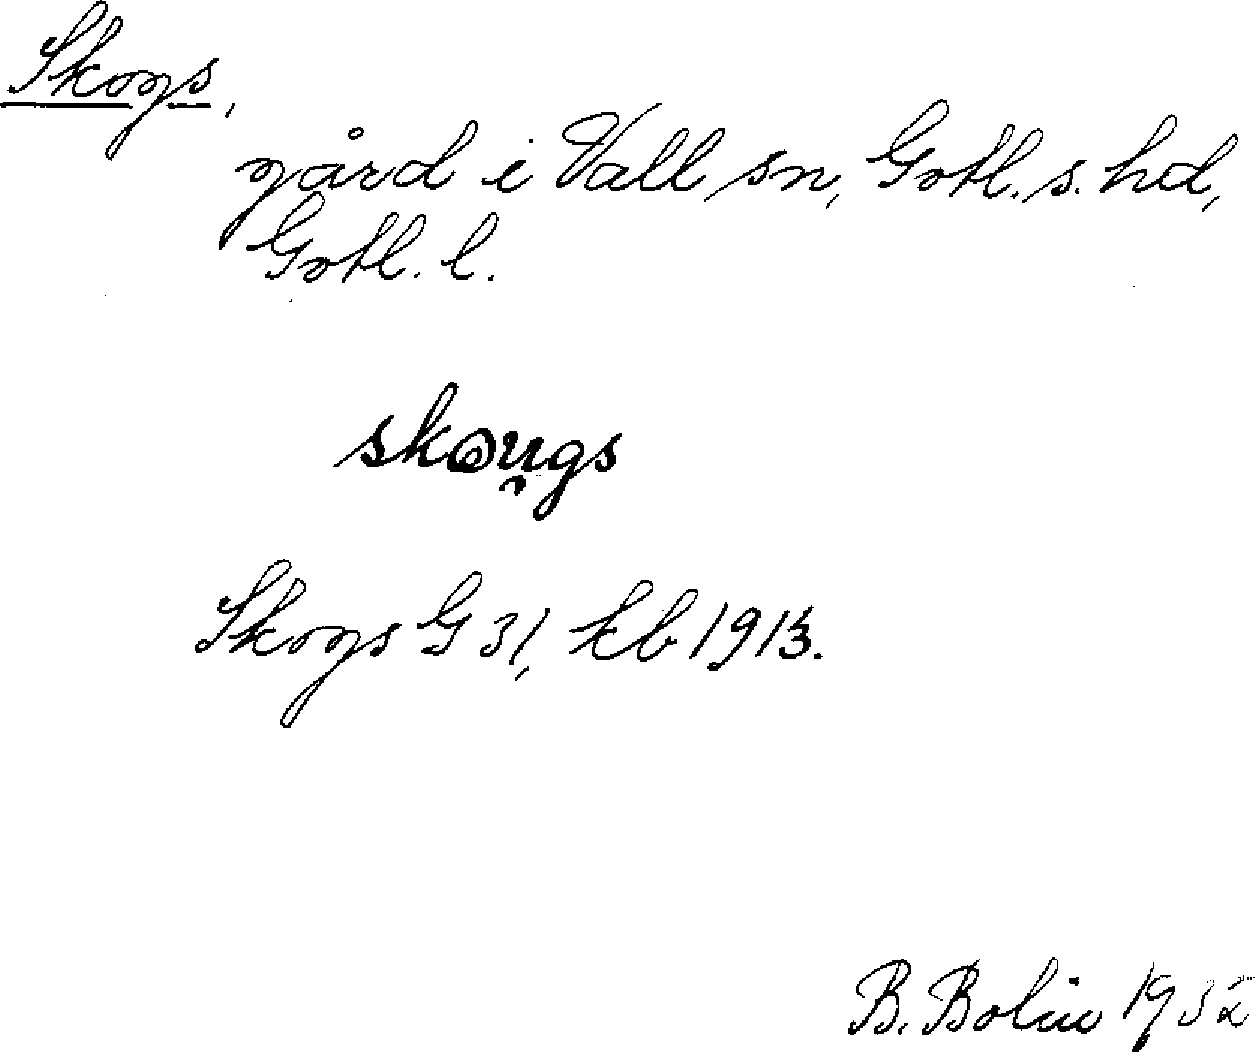 Skogs,
gård i Vall sn, Gotl. s. hd,
Gotl. l.
skꝏu̯gs
Skogs G 31, kb 1913.
B. Bolin 1932